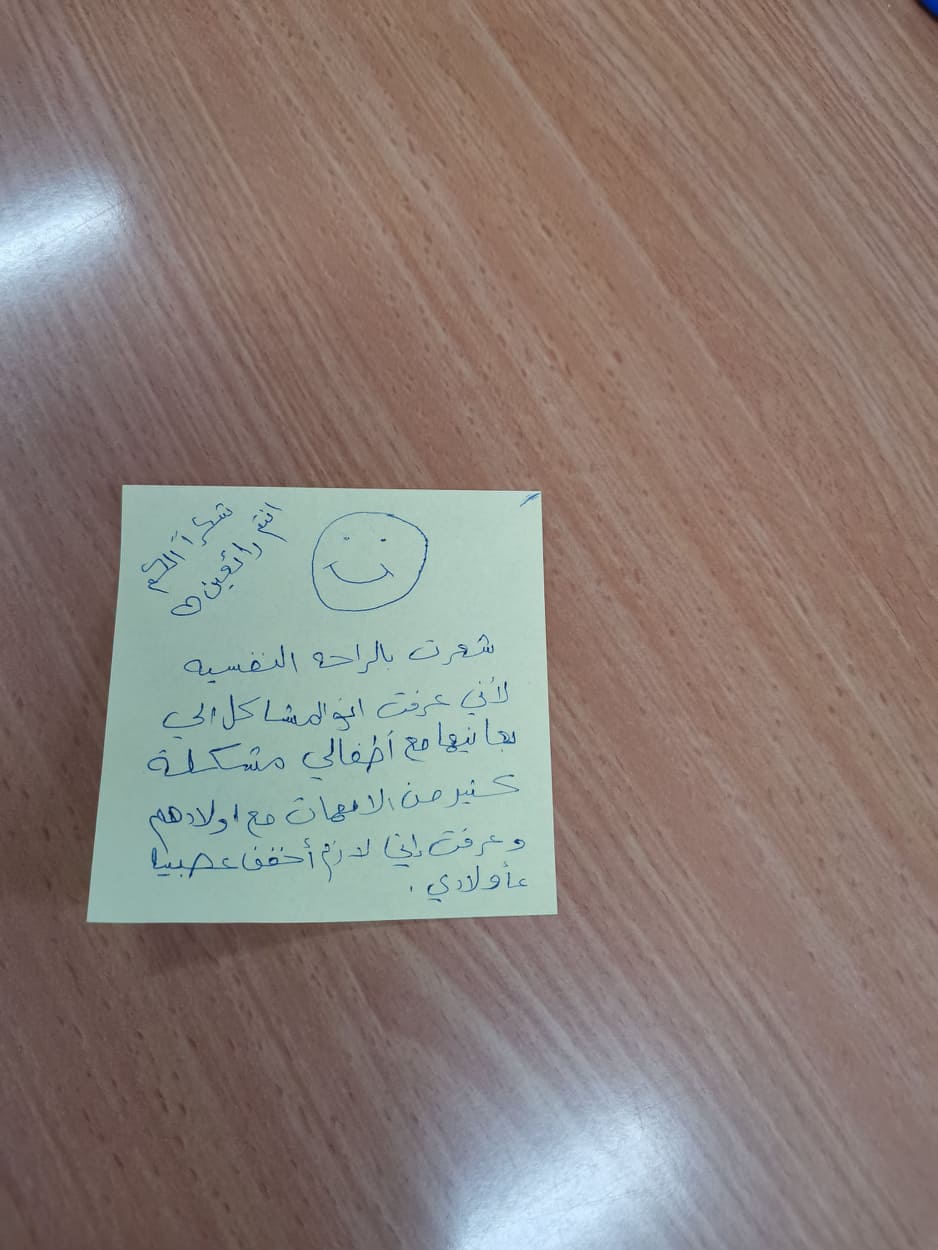 شكراً الكم
انتم رائعين
شعرت بالراحه النفسيه
لأني عرفت انو المشاكل الي
بعانيها مع أطفالي مشكلة
كثير من الامهات مع اولادهم
وعرفت إني لازم أخفف عصبيا
عأولادي.